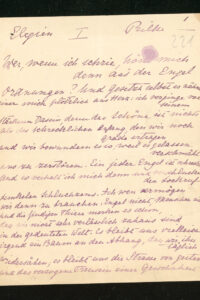 Elegien I Rilke
221
Wer, wenn ich schrie, hörte mich
denn aus der Engel
Ordnungen? Und gesetzt selbst es nähme
einer mich plötzlich ans Herz: ich verginge von
seinem
stärkeren Dasein denn das Schöne ist nichts
als des schrecklichen Anfang, den wir noch
grade ertragen
und wir bewundern es so, weil es gelassen
verschmäht
uns zu zerstören. Ein jeder Engel ist
und so verhalt ich mich denn und verschlucke
den Lockruf
dunkelen Schluchzens. Ach wen vermögen
wir denn zu brauchen. Engel nicht, Menschen
und die findigen Thiere merken es schon,
dass wir nicht sehr verlässlich zuhaus sind
in der gedeuteten Welt. Es bleibt uns vielleicht
irgend ein Baum an dem Abhang, den wir
täglich
wiedersähen, es bleibt uns die Strasse von gestern
und das verzogene Treusein einer Gewohnheit